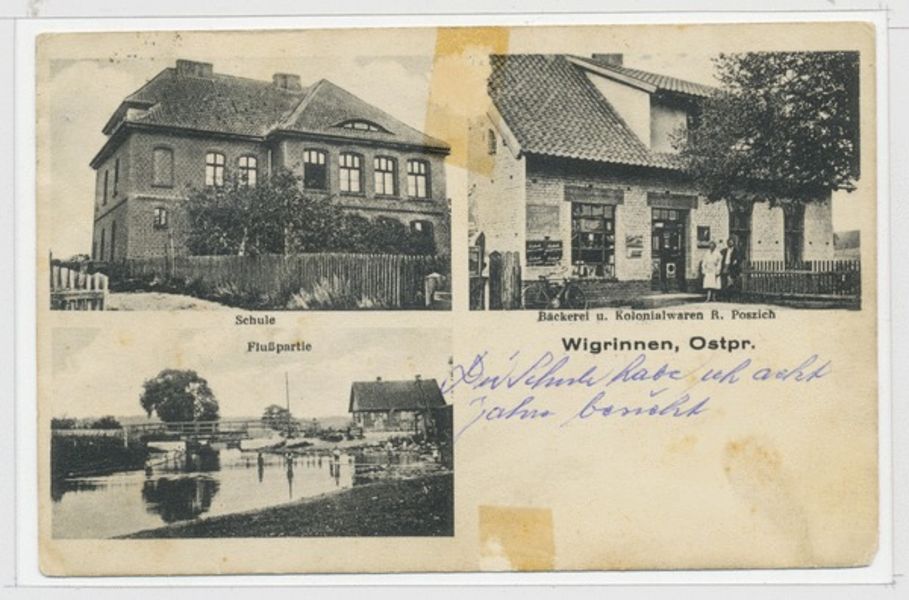 Schule
Bäckerei u. Kolonialwaren R. Poszich
Flußpartie
Wigrinnen, Ostpr.
Die Schule habe ich acht
Jahre besucht